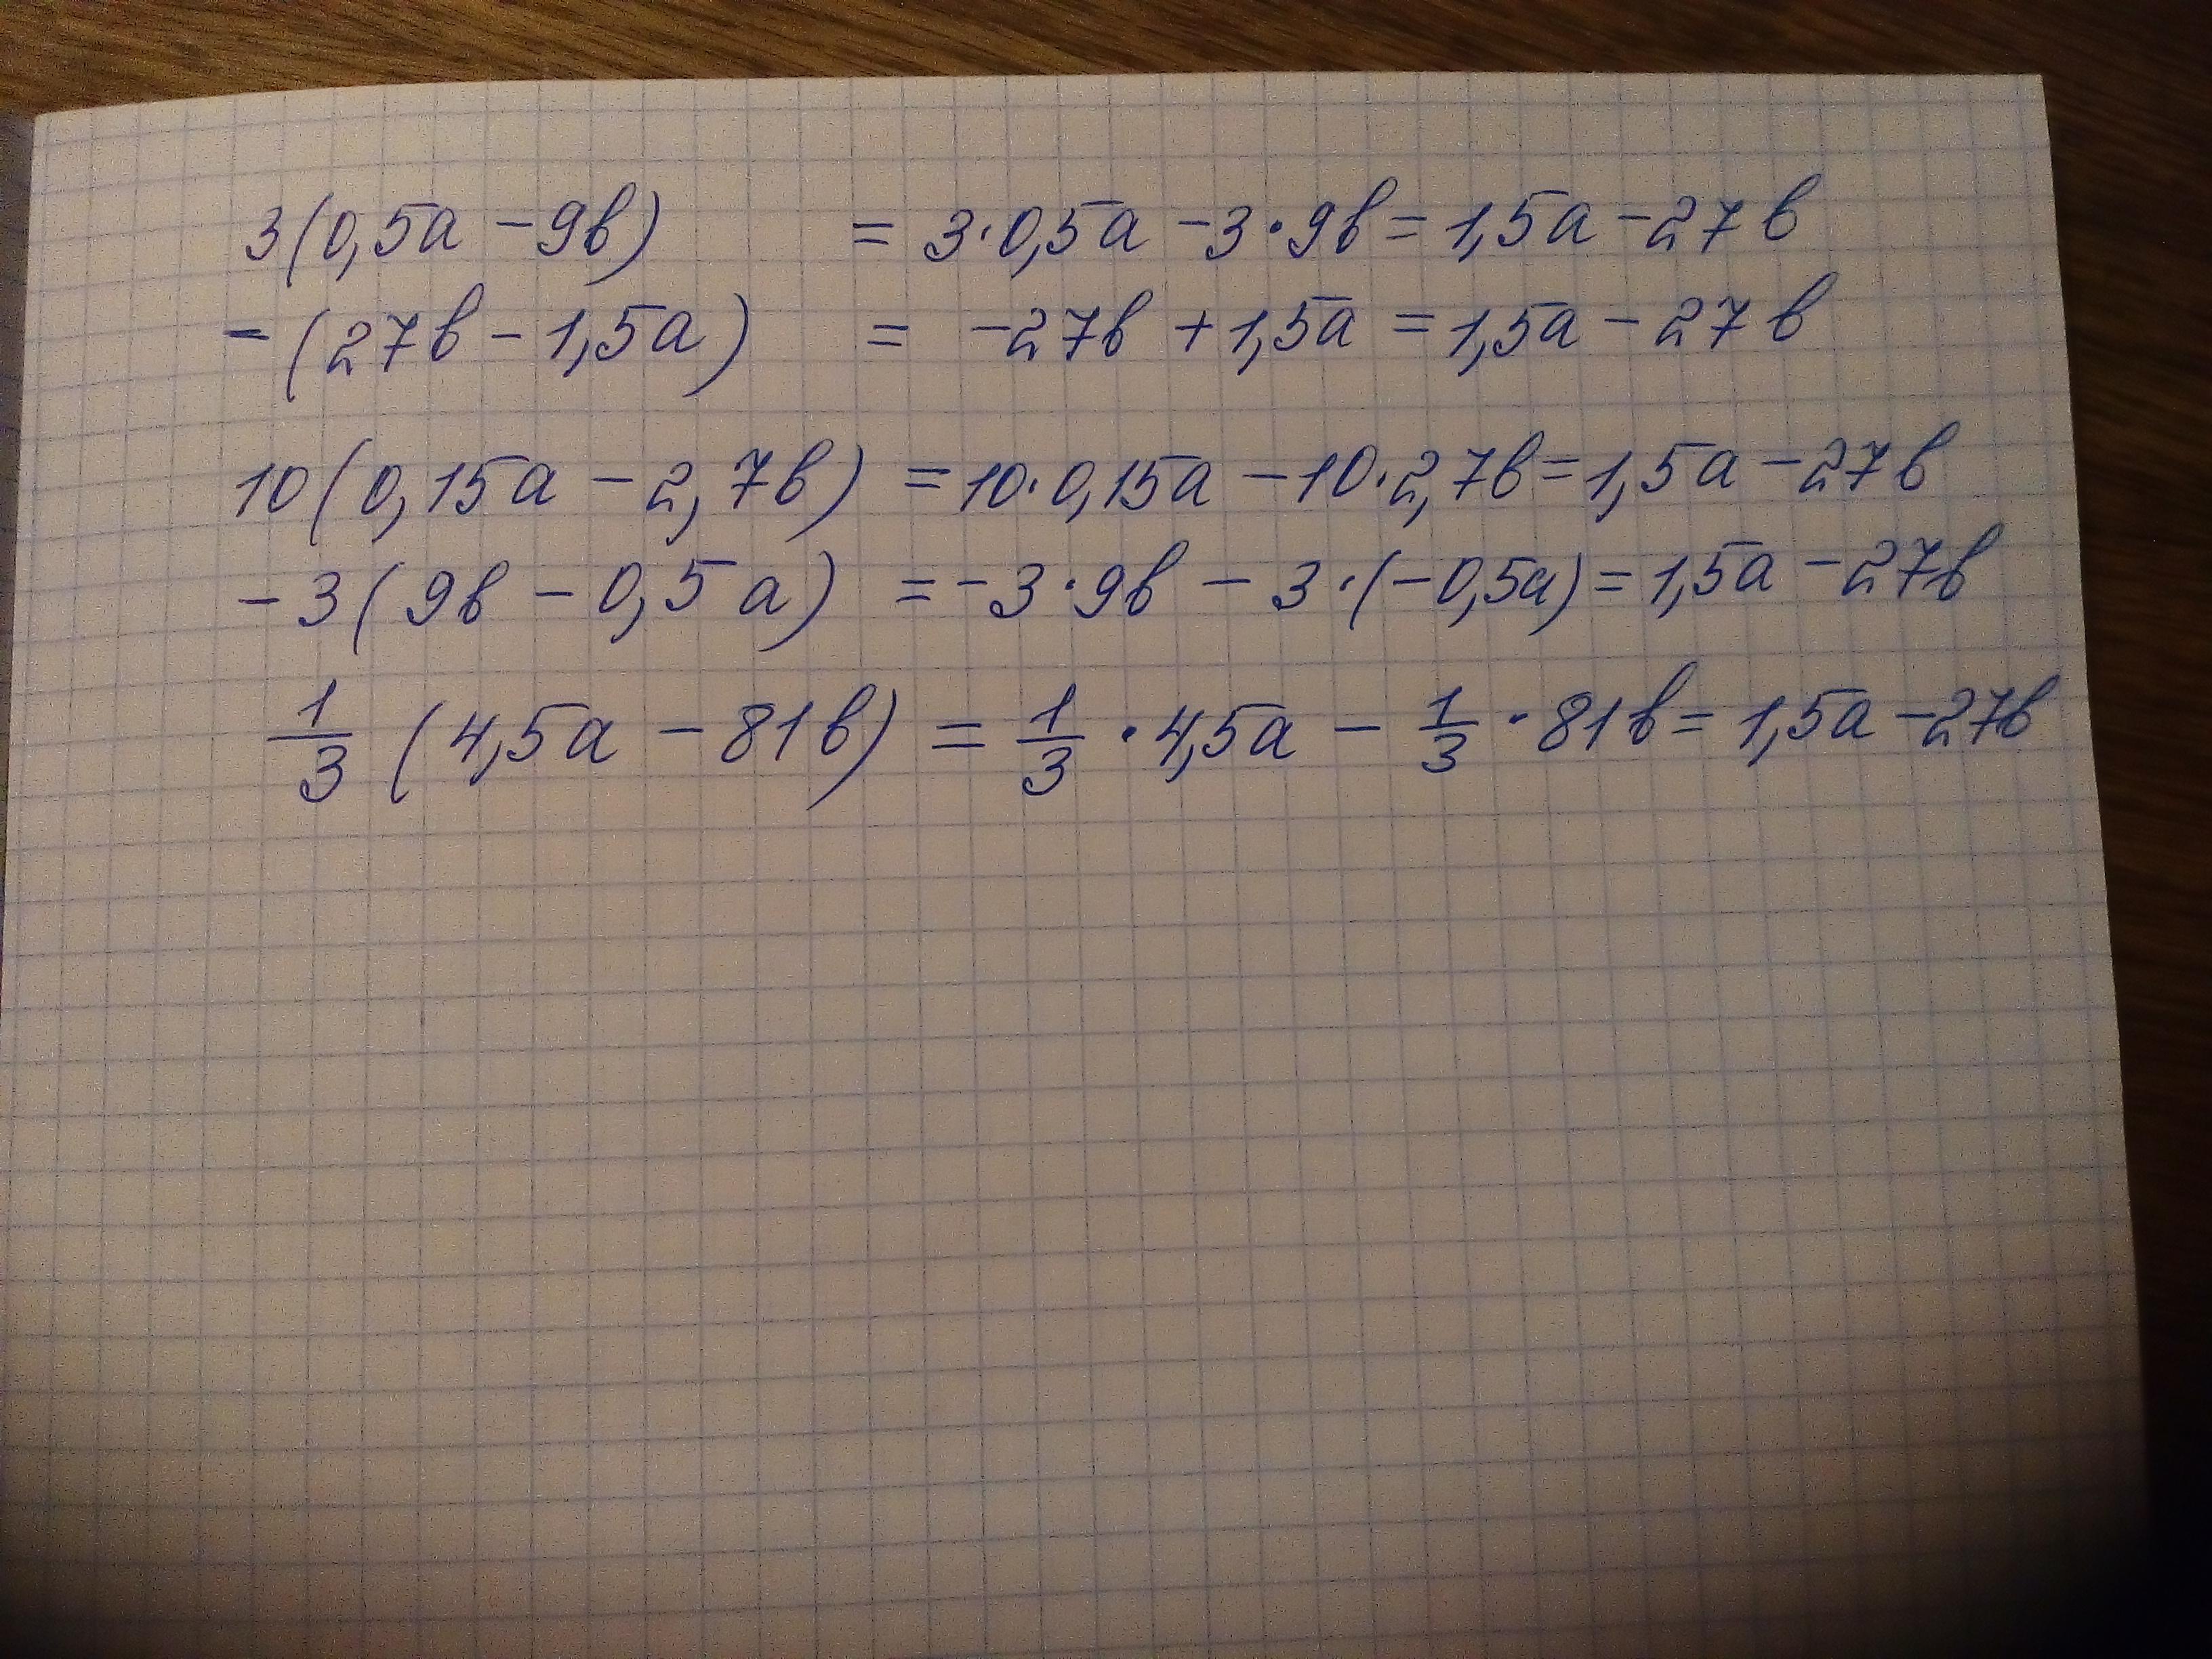 3(0,5a - 9b) = 3·0,5a - 3·9b = 1,5a - 27b
- (27b - 1,5a) = -27b + 1,5a = 1,5a - 27b
10(0,15a - 2,7b) = 10·0,15a - 10·2,7b = 1,5a - 27b
-3(9b - 0,5a) = -3·9b - 3·(-0,5a) = 1,5a - 27b
1/3 (4,5a - 81b) = 1/3 · 4,5a - 1/3 · 81b = 1,5a - 27b